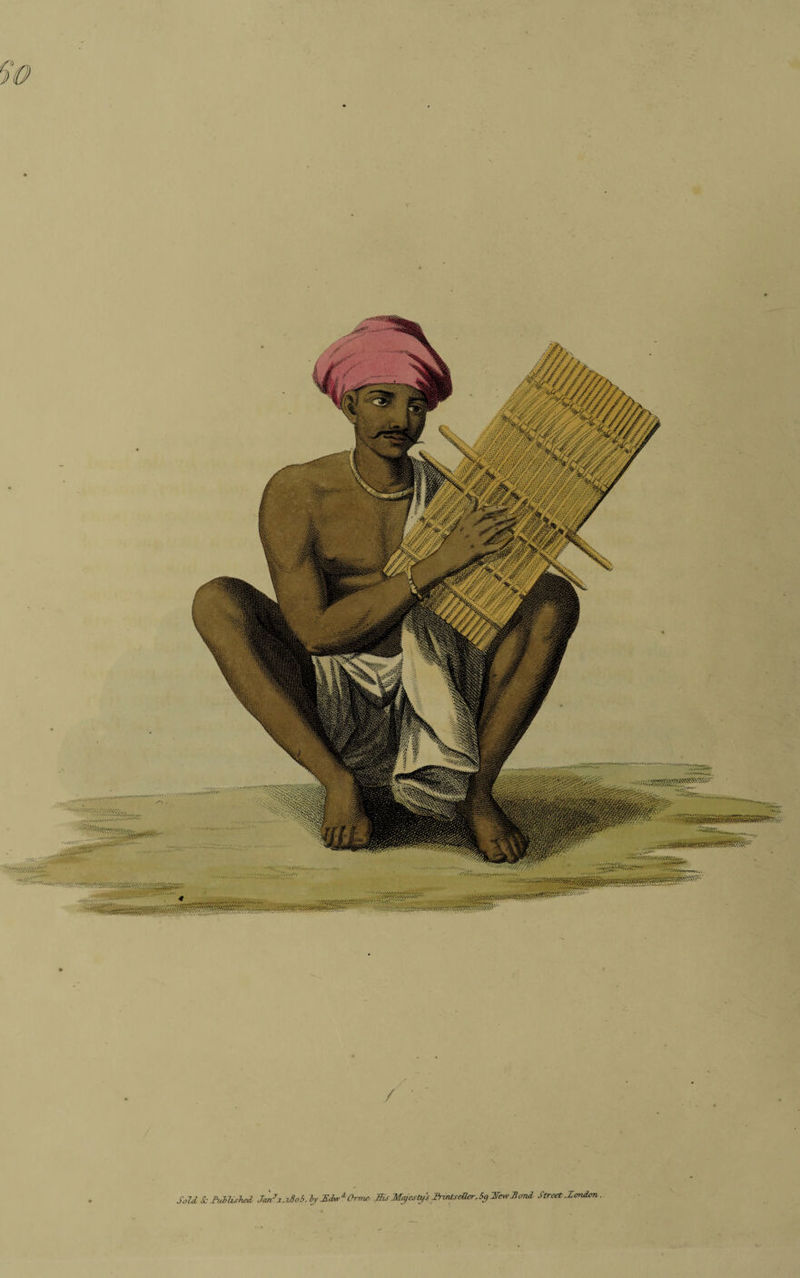 60
Sold & Published Jany 1, 1806, by Edwd Orme His Majesty's Printseller, 59 New Bond Street London.